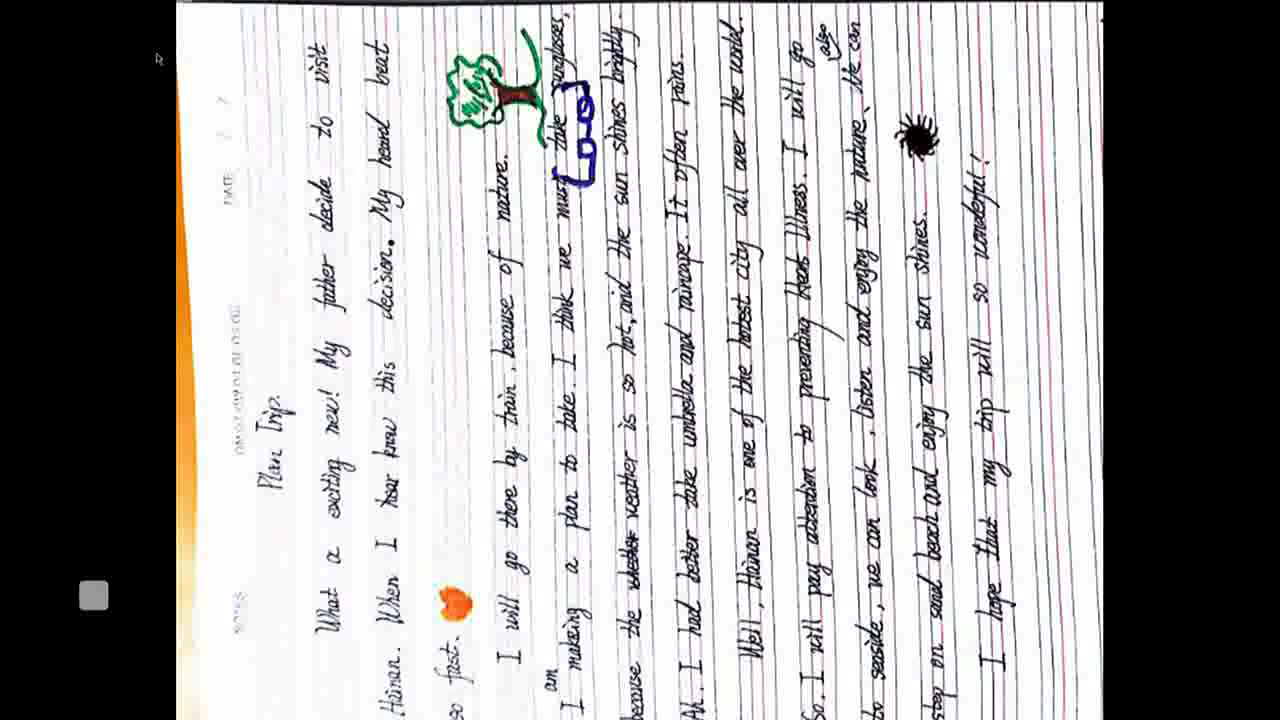 NOTES
DATE
Plan Trip.
What a exciting new! My father decide to visit
Hainan. When I hear know this decision. My heard beat
so fast.
I will go there by train, because of nature.
am
I makeing a plan to take. I think we must take sunglasses,
because the whether weather is so hot, and the sun shines brightly.
Ah. I had better take umbrella and raincape. It often rains.
Well, Hainan is one of the hotest city all over the world.
So. I will pay attention to preventing Heats Illness. I will go
also
to seaside, we can look, listen and enjoy the nature. We can
step on sand beach and enjoy the sun shines.
I hope that my trip will so wonderful!